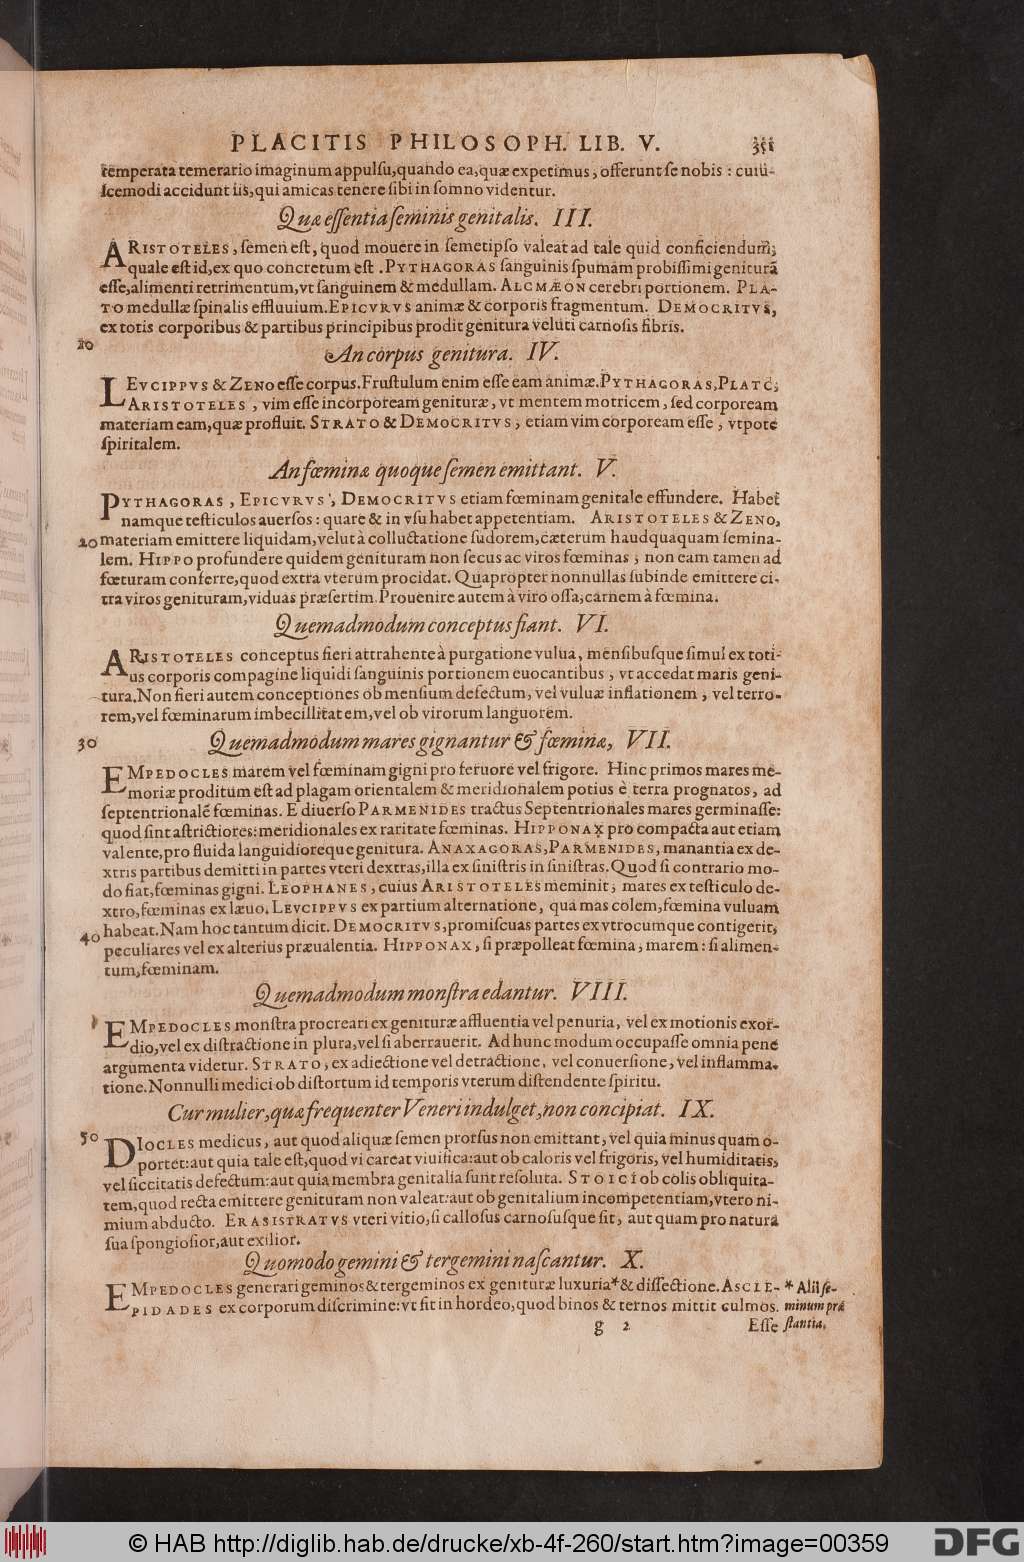 PLACITIS PHILOSOPH. LIB. V. 351
temperata temerario imaginum appulsu, quando ea, quæ expetimus, offerunt se nobis: cuiu-
scemodi accidunt iis, qui amicas tenere sibi in somno videntur.
Quæ essentia seminis genitalis. III.
ARISTOTELES, semen est, quod mouere in semetipso valeat ad tale quid conficiendum,
quale est id, ex quo concretum est. PYTHAGORAS sanguinis spumam probissimi geniturã
esse, alimenti retrimentum, vt sanguinem & medullam. ALCMÆON cerebri portionem. PLA-
TO medullæ spinalis effluuium. EPICVRVS animæ & corporis fragmentum. DEMOCRITVS,
ex totis corporibus & partibus principibus prodit genitura veluti carnosis fibris.
10
An corpus genitura. IV.
LEVCIPPVS & ZENO esse corpus. Frustulum enim esse eam animæ. PYTHAGORAS, PLATO,
ARISTOTELES, vim esse incorpoream genituræ, vt mentem motricem, sed corpoream
materiam eam, quæ profluit. STRATO & DEMOCRITVS, etiam vim corpoream esse, vtpote
spiritalem.
An fœminæ quoque semen emittant. V.
PYTHAGORAS, EPICVRVS, DEMOCRITVS etiam fœminam genitale effundere. Habet
namque testiculos auersos: quare & in vsu habet appetentiam. ARISTOTELES & ZENO,
20 materiam emittere liquidam, velut à colluctatione sudorem, cæterum haudquaquam semina-
lem. HIPPO profundere quidem genituram non secus ac viros fœminas, non eam tamen ad
fœturam conferre, quod extra vterum procidat. Quapropter nonnullas subinde emittere ci-
tra viros genituram, viduas præsertim. Prouenire autem à viro ossa, carnem à fœmina.
Quemadmodum conceptus fiant. VI.
ARISTOTELES conceptus fieri attrahente à purgatione vulua, mensibusque simul ex toti-
us corporis compagine liquidi sanguinis portionem euocantibus, vt accedat maris geni-
tura. Non fieri autem conceptiones ob mensium defectum, vel vuluæ inflationem, vel terro-
rem, vel fœminarum imbecillitatem, vel ob virorum languorem.
30 Quemadmodum mares gignantur & fœminæ, VII.
EMPEDOCLES marem vel fœminam gigni pro feruore vel frigore. Hinc primos mares me-
moriæ proditum est ad plagam orientalem & meridionalem potius è terra prognatos, ad
septentrionalẽ fœminas. E diuerso PARMENIDES tractus Septentrionales mares germinasse:
quod sint astrictiores: meridionales ex raritate fœminas. HIPPONAX pro compacta aut etiam
valente, pro fluida languidioreque genitura. ANAXAGORAS, PARMENIDES, manantia ex de-
xtris partibus demitti in partes vteri dextras, illa ex sinistris in sinistras. Quod si contrario mo-
do fiat, fœminas gigni. LEOPHANES, cuius ARISTOTELES meminit, mares ex testiculo de-
xtro, fœminas ex læuo. LEVCIPPVS ex partium alternatione, qua mas colem, fœmina vuluam
40 habeat. Nam hoc tantum dicit. DEMOCRITVS, promiscuas partes ex vtrocumque contigerit,
peculiares vel ex alterius præualentia. HIPPONAX, si præpolleat fœmina, marem: si alimen-
tum, fœminam.
Quemadmodum monstra edantur. VIII.
EMPEDOCLES monstra procreari ex genituræ affluentia vel penuria, vel ex motionis exor-
dio, vel ex distractione in plura, vel si aberrauerit. Ad hunc modum occupasse omnia pene
argumenta videtur. STRATO, ex adiectione vel detractione, vel conuersione, vel inflamma-
tione. Nonnulli medici ob distortum id temporis vterum distendente spiritu.
Cur mulier, quæ frequenter Veneri indulget, non concipiat. IX.
50 DIOCLES medicus, aut quod aliquæ semen prorsus non emittant, vel quia minus quam o-
portet: aut quia tale est, quod vi careat viuifica: aut ob caloris vel frigoris, vel humiditatis,
vel siccitatis defectum: aut quia membra genitalia sunt resoluta. STOICI ob colis obliquita-
tem, quod recta emittere genituram non valeat: aut ob genitalium incompetentiam, vtero ni-
mium abducto. ERASISTRATVS vteri vitio, si callosus carnosusque sit, aut quam pro natura
sua spongiosior, aut exilior.
Quomodo gemini & tergemini nascantur. X.
EMPEDOCLES generari geminos & tergeminos ex genituræ luxuria* & dissectione. ASCLE-
PIDADES ex corporum discrimine: vt fit in hordeo, quod binos & ternos mittit culmos.
* Alii se-
minum præ
stantia.
g 2 Esse
© HAB http://diglib.hab.de/drucke/xb-4f-260/start.htm?image=00359
DFG